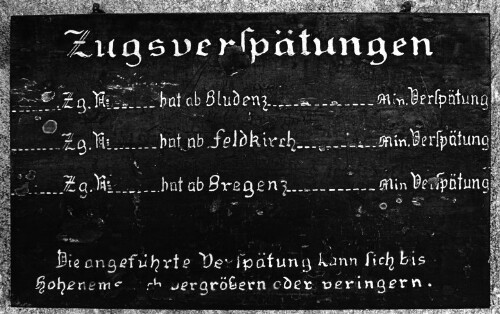 Zugsverspätungen
Zg. Nr. hat ab Bludenz Min. Verspätung
Zg. Nr. hat ab Feldkirch Min. Verspätung
Zg. Nr. hat ab Bregenz Min Verspätung
Die angeführte Verspätung kann sich bis
vergrößern oder veringern.